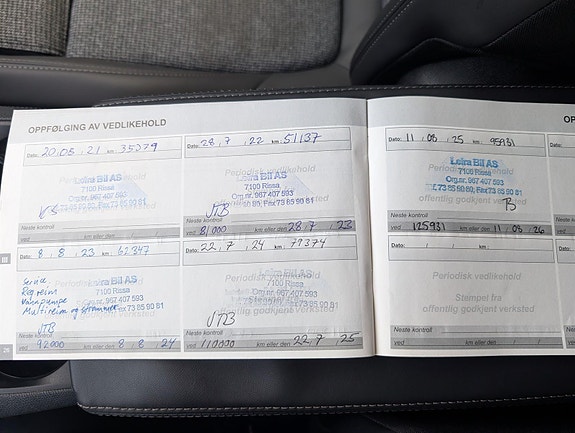 OPPFØLGING AV VEDLIKEHOLD
Dato: 20,08,21 km: 35079
Leira Bil AS
7100 Rissa
Org.nr. 967 407 593
Tlf. 73 85 90 80, Fax 73 85 90 81
Neste kontroll
ved km eller den
Dato: 28,7,22 km: 51137
Periodisk vedlikehold
Leira Bil AS
7100 Rissa
Org.nr. 967 407 593
90 80, Fax 73 85 90 81
offentlig godkjent verksted
JTB
Neste kontroll
ved 81000 km eller den 28,7,23
Dato: 8,8,23 km: 62347
Service
Reg reim
Vannpumpe
Multireim og strammer
Leira Bil AS
7100 Rissa
Org.nr. 967 407 593
Fax 73 85 90 81
JTB
Neste kontroll
ved 92000 km eller den 8,8,24
Dato: 22,7,24 km: 79374
Periodisk vedlikehold
Leira Bil AS
7100 Rissa
Org.nr. 967 407 593
Fax 73 85 90 81
offentlig godkjent verksted
JTB
Neste kontroll
ved 110000 km eller den 22,7,25
III
26
OP
Dato: 11,08,25 km: 95931
Leira Bil AS
7100 Rissa
Org.nr. 967 407 593
Tlf. 73 85 90 80, Fax 73 85 90 81
offentlig godkjent verksted
Neste kontroll
ved 125931 km eller den 11,05,26
Dato: / / km:
Periodisk vedlikehold
Stempel fra
offentlig godkjent verksted
Neste kontroll
ved km eller den / /